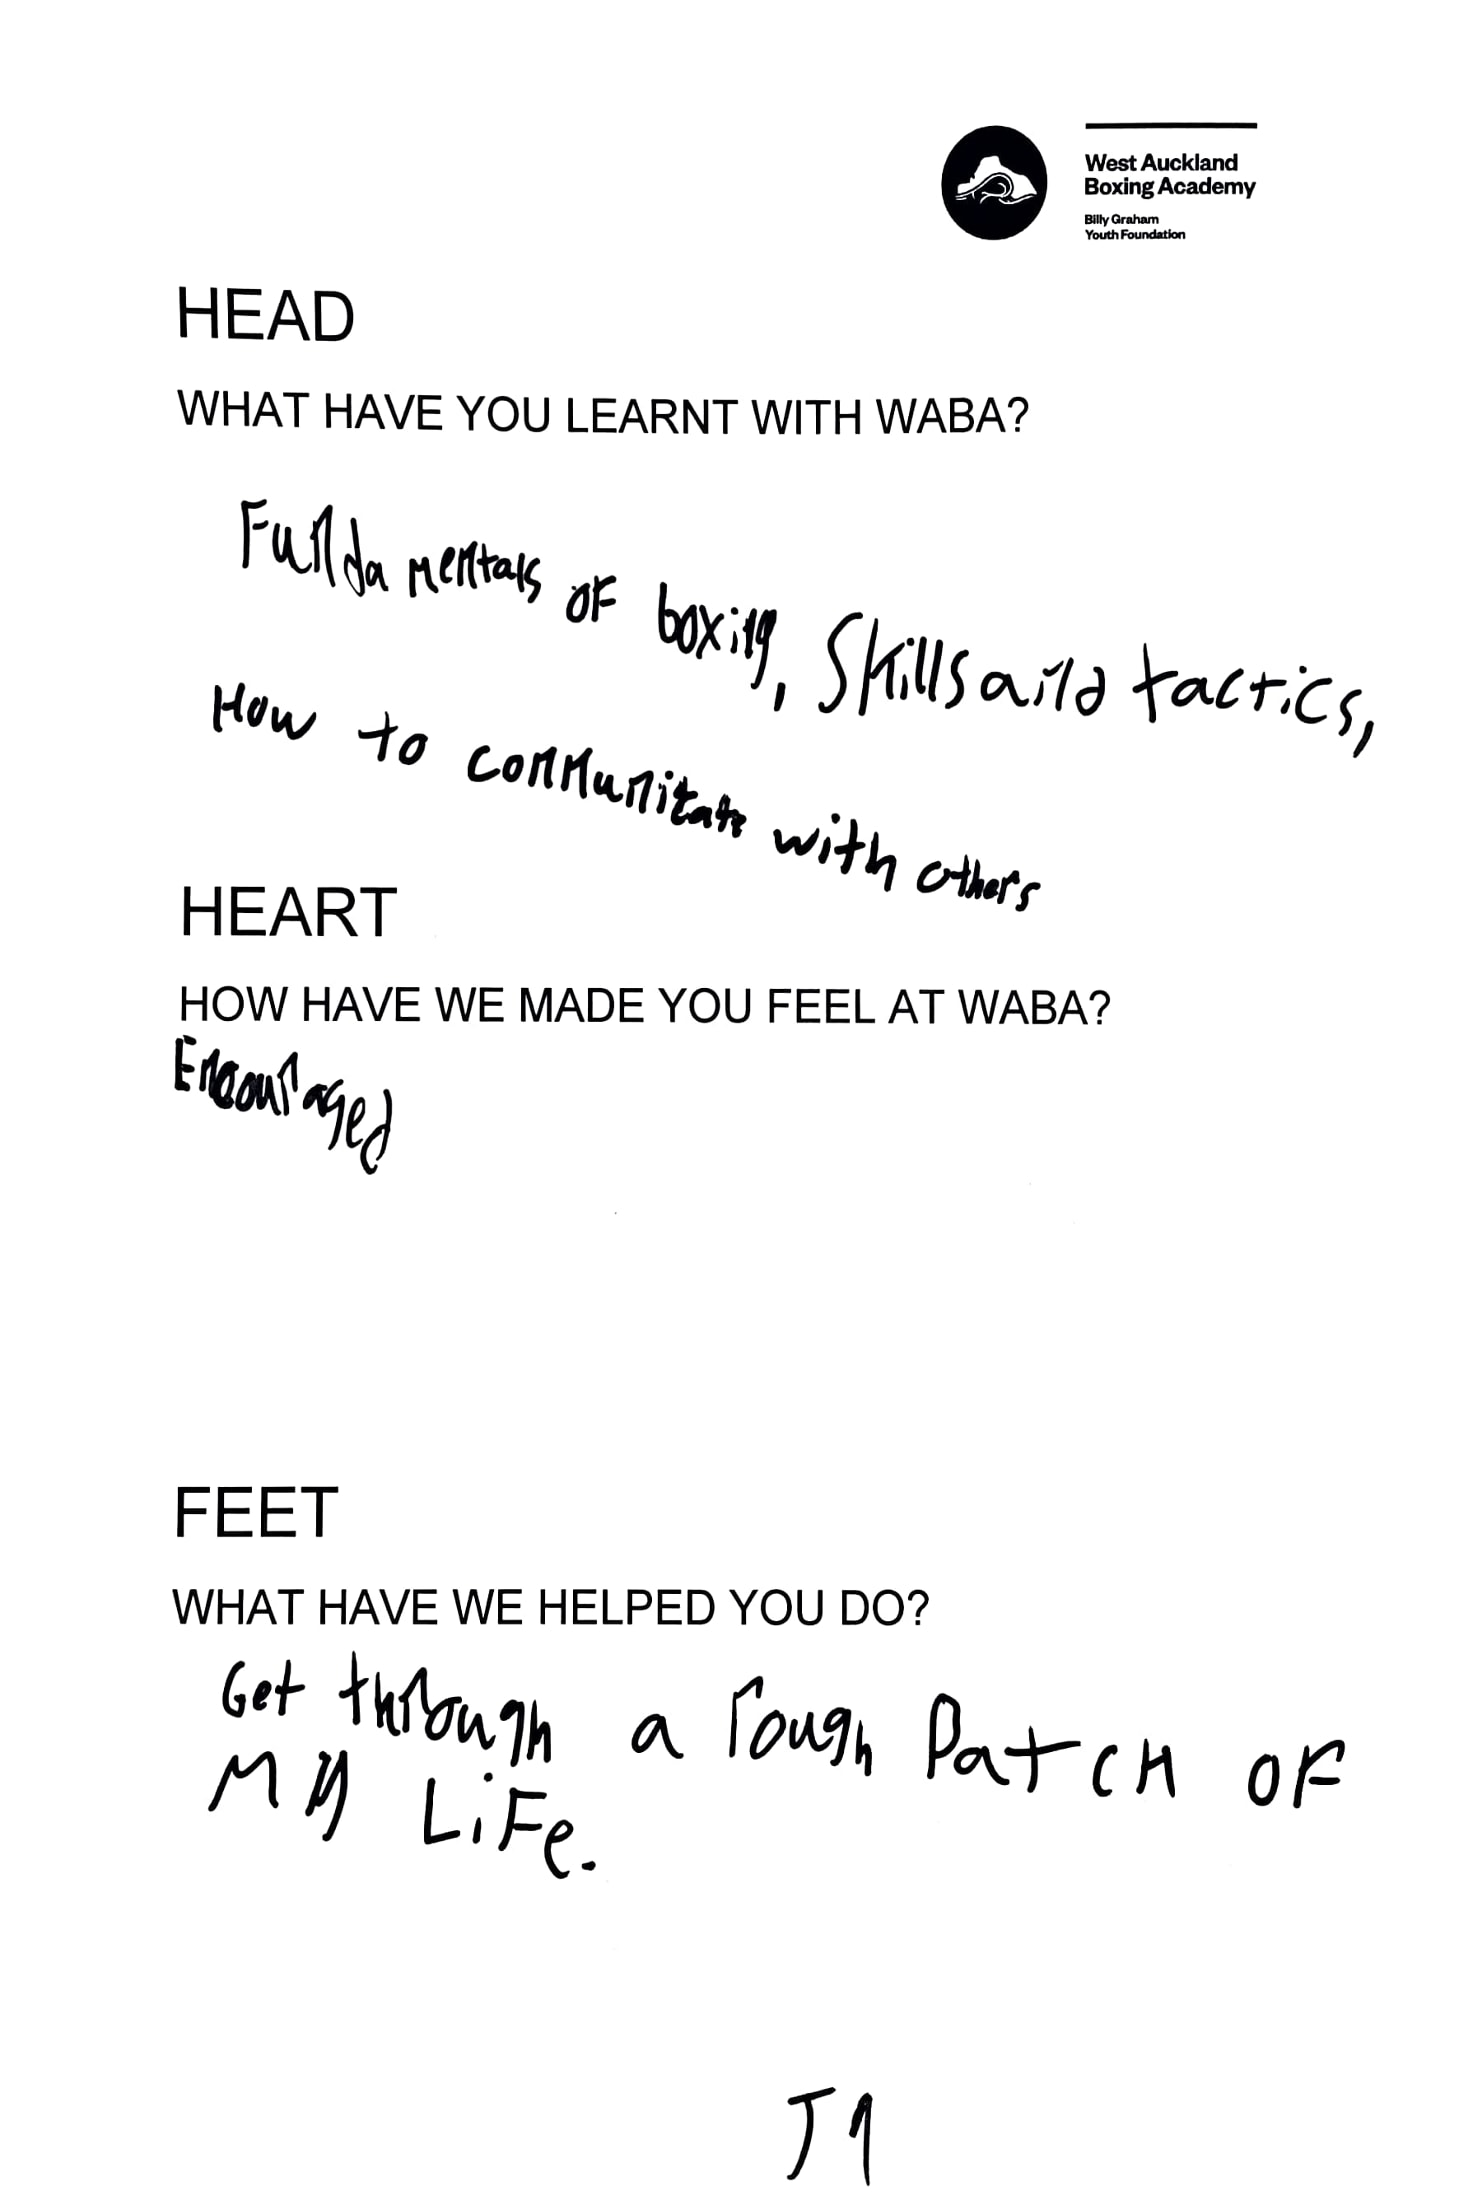 West Auckland
Boxing Academy
Billy Graham
Youth Foundation
HEAD
WHAT HAVE YOU LEARNT WITH WABA?
Fundamentals of boxing, Skills and tactics,
How to communitate with others
HEART
HOW HAVE WE MADE YOU FEEL AT WABA?
Encouraged
FEET
WHAT HAVE WE HELPED YOU DO?
Get through a rough Patch of
My Life.